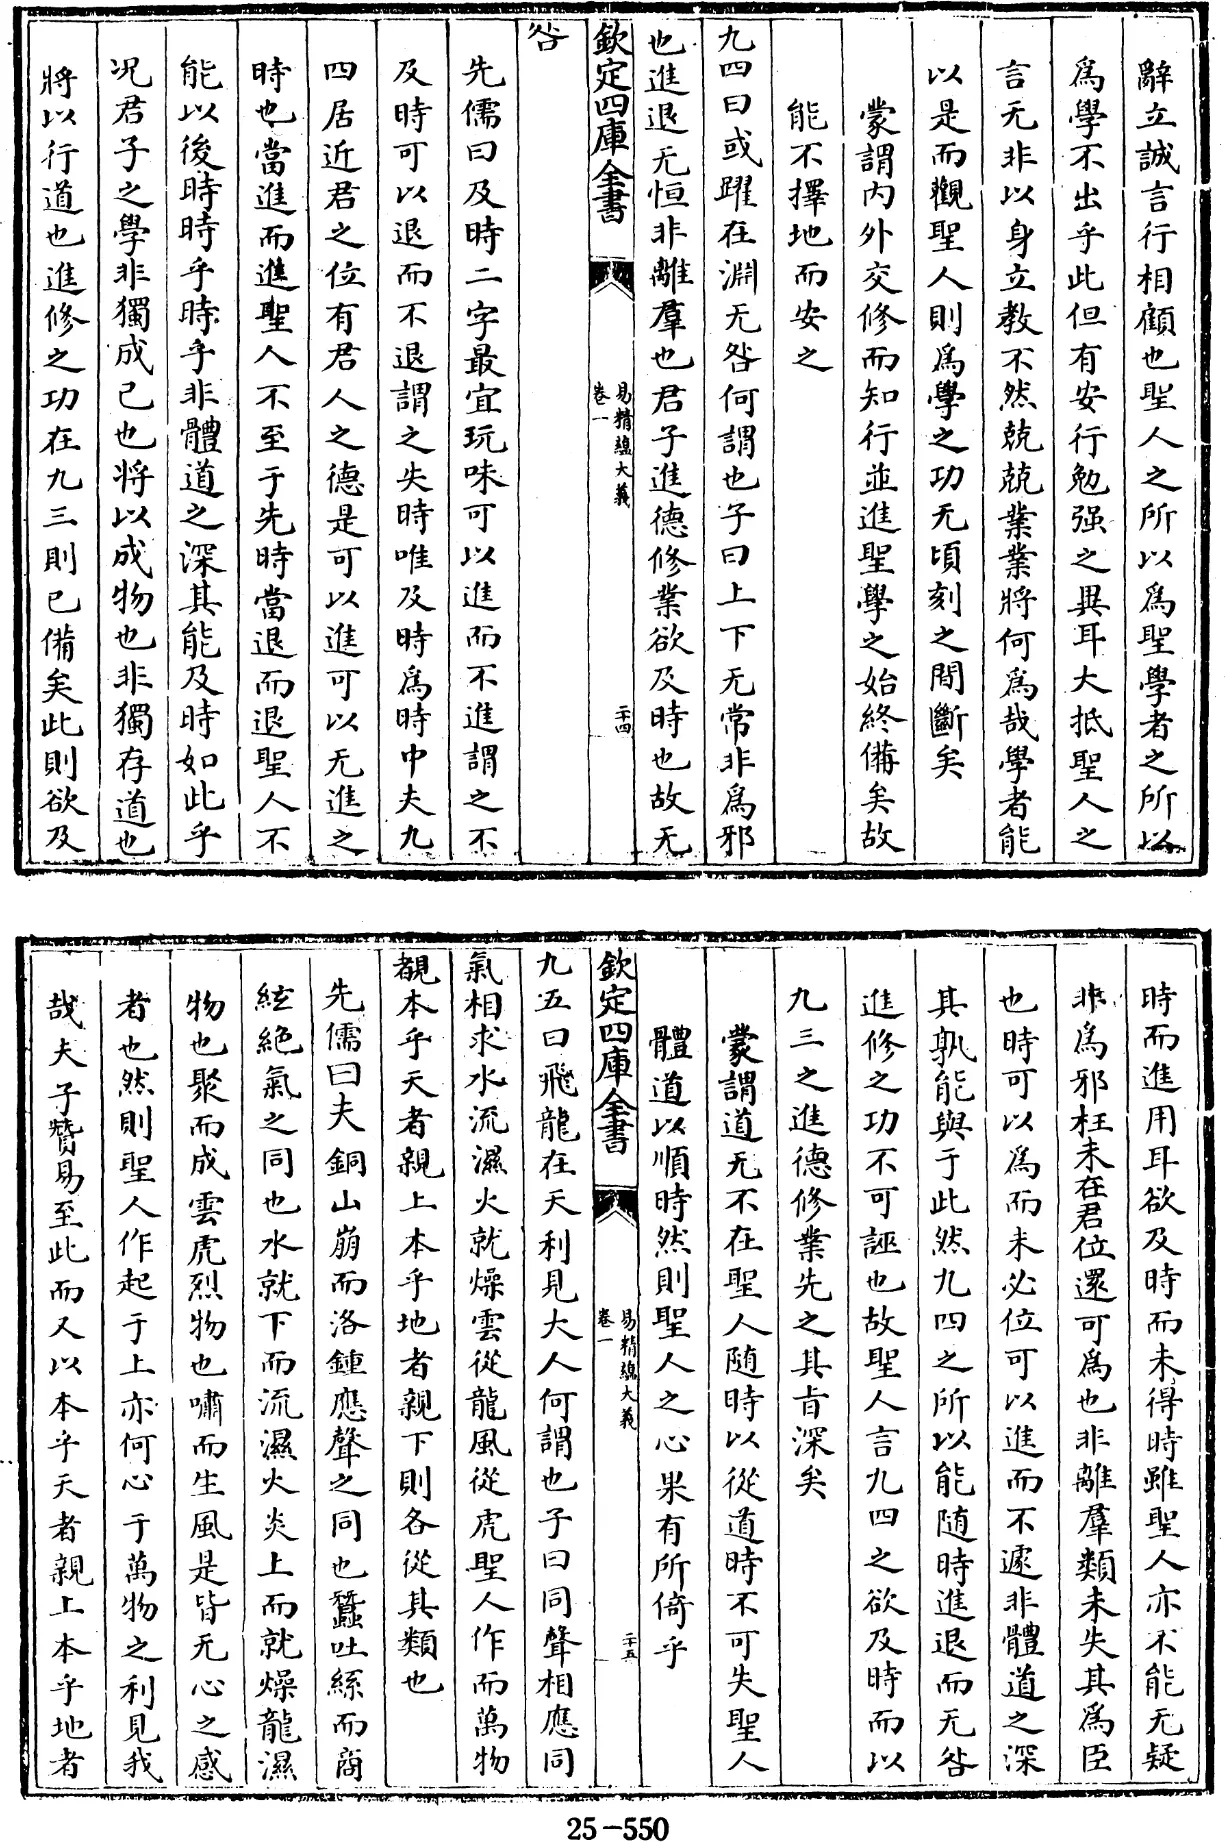 辭立誠言行相顧也聖人之所以爲聖學者之所以
爲學不出乎此但有安行勉强之異耳大抵聖人之
言无非以身立教不然兢兢業業將何爲哉學者能
以是而觀聖人則爲學之功无頃刻之間斷矣
蒙謂内外交修而知行並進聖學之始終備矣故
能不擇地而安之
九四曰或躍在淵无咎何謂也子曰上下无常非爲邪
也進退无恒非離羣也君子進德修業欲及時也故无
欽定四庫全書
易精蘊大義
卷一
二十四
咎
先儒曰及時二字最宜玩味可以進而不進謂之不
及時可以退而不退謂之失時唯及時爲時中夫九
四居近君之位有君人之德是可以進可以无進之
時也當進而進聖人不至于先時當退而退聖人不
能以後時時乎時乎非體道之深其能及時如此乎
况君子之學非獨成己也將以成物也非獨存道也
將以行道也進修之功在九三則已備矣此則欲及
時而進用耳欲及時而未得時雖聖人亦不能无疑
非爲邪枉未在君位還可爲也非離羣類未失其爲臣
也時可以爲而未必位可以進而不遽非體道之深
其孰能與于此然九四之所以能随時進退而无咎
進修之功不可誣也故聖人言九四之欲及時而以
九三之進德修業先之其旨深矣
蒙謂道无不在聖人随時以從道時不可失聖人
體道以順時然則聖人之心果有所倚乎
欽定四庫全書
易精蘊大義
卷一
二十五
九五曰飛龍在天利見大人何謂也子曰同聲相應同
氣相求水流濕火就燥雲從龍風從虎聖人作而萬物
覩本乎天者親上本乎地者親下則各從其類也
先儒曰夫銅山崩而洛鍾應聲之同也蠶吐絲而商
絃絕氣之同也水就下而流濕火炎上而就燥龍濕
物也聚而成雲虎烈物也嘯而生風是皆无心之感
者也然則聖人作起于上亦何心于萬物之利見我
哉夫子贊易至此而又以本乎天者親上本乎地者
25-550